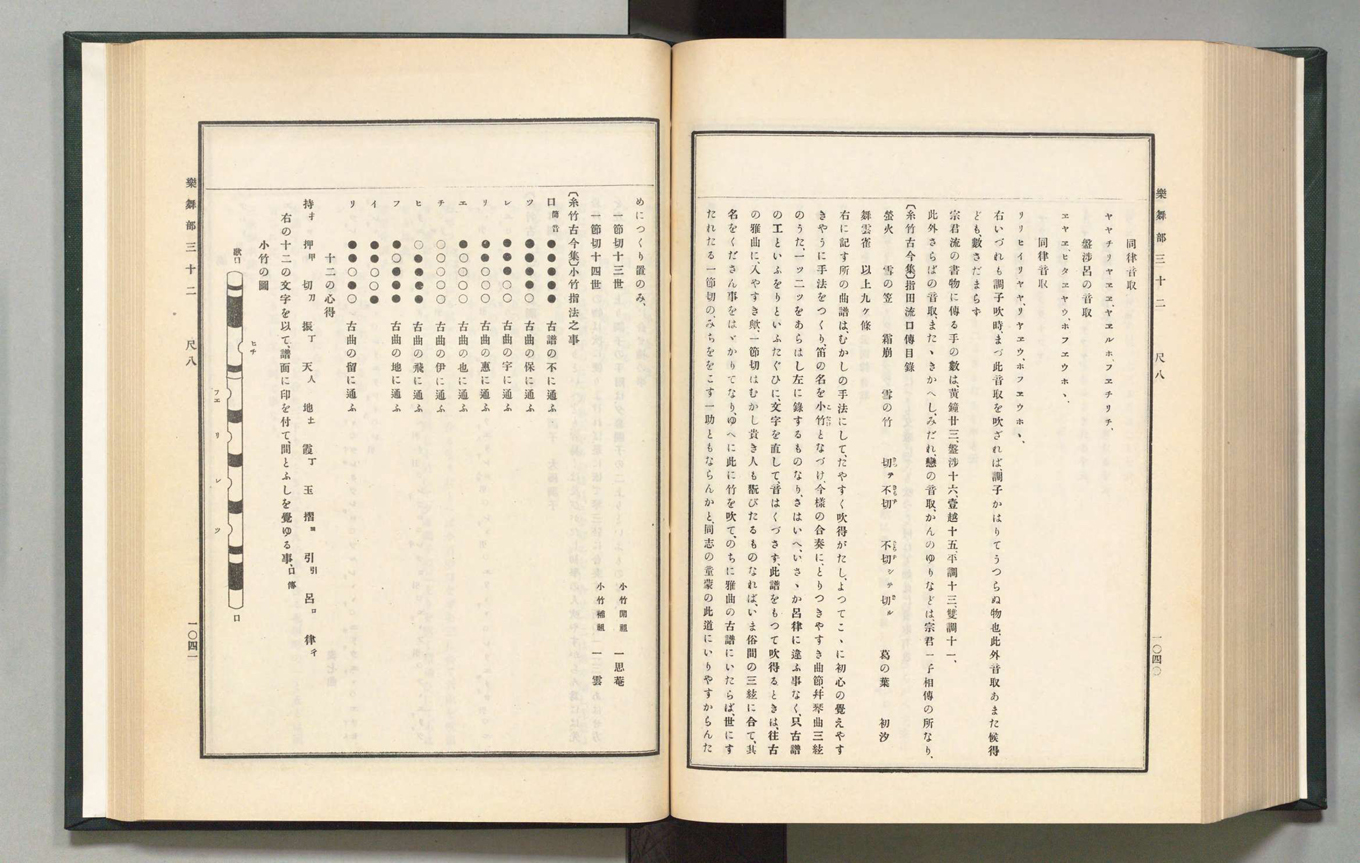 樂舞部三十二 尺八
一〇四〇
同律音取
ヤヤチリヤヱヱ、ヤヱルホ、フヱチリチ、
盤渉呂の音取
ヱヤヱ、ヒタヱヤウ、ホフヱウホヽ、
同律音取
リリヒイリヤヤ、リヤヱウ、ホフヱウホヽ、
右いづれも調子吹時、まづ此音取を吹ざれば、調子かはりてうつらぬ物也、此外音取あまた候得
ども、數さだまらず
宗君流の書物に傳る手の數は、黃鐘廿三、盤渉十六、壹越十五、平調十三、雙調十一、
此外さらばの音取、またヽきかへし、みだれ戀の音取、かんのゆりなどは、宗君一子相傳の所なり、
〔糸竹古今集〕指田流口傳目錄
螢火 雪の笠 霜崩 雪の竹 切テ不切 不切シテ切ル 葛の葉 初汐
舞雲雀 以上九ケ條
右に記す所の曲譜は、むかしの手法にして、たやすく吹得がたし、よつてこヽに初心の覺えやす
きやうに手法をつくり、笛の名を小竹となづけ、今樣の合奏に、とりつきやすき曲節、幷琴曲三絃
のうた、一ツ二ツをあらはし左に錄するものなり、さはいへ、いさヽか呂律に違ふ事なく、只古譜
の工といふをりといふたぐひに、文字を直して、音はくづさず、此譜をもつて吹得るときは、往古
の雅曲に、入やすき歟、一節切はむかし貴き人も翫びたるものなれば、いま俗間の三絃に合て、其
名をくださん事をはヾかりてなり、ゆへに此に竹を吹て、のちに雅曲の古譜にいたらば、世にす
たれたる一節切のみちををこす一助ともならんかと、同志の童蒙の此道にいりやすからんた
めにつくり置のみ、
一節切十三世 小竹開祖 一思菴
一節切十四世 小竹補祖 一雲
〔糸竹古今集〕小竹指法之事
口 筒音 ●●●●● 古譜の不に通ふ
ツ ●●●●○ 古曲の保に通ふ
レ ●●●○○ 古曲の宇に通ふ
リ ●●○○○ 古曲の惠に通ふ
ヱ ●○○○○ 古曲の也に通ふ
チ ○○○○○ 古曲の伊に通ふ
ヒ ○●●●● 古曲の飛に通ふ
フ ●○●●● 古曲の地に通ふ
イ ●○○○●
リ ●●○●○ 古曲の留に通ふ
十二の心得
持オ 押甲 切刀 振丁 天人 地土 霞丁 玉 摺ヨ 引引 呂ロ 律ヰ
右の十二の文字を以て、譜面に印を付て、間とふしを覺ゆる事、口傳
小竹の圖
歌口 ヒチ フヱ リ レ ツ ロ
樂舞部三十二 尺八
一〇四一